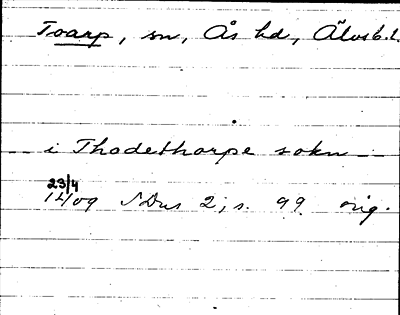 Toarp, sn, Ås hd, Älvsb.l.
i Thodethorpe sokn
23/4
1409 SDns 2, s. 99 orig.